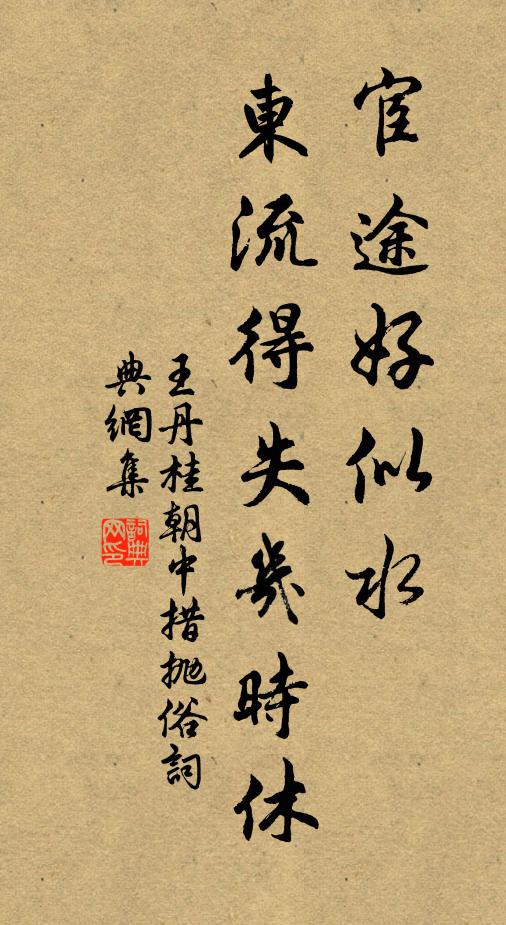 宦途好似水
東流得失幾時休
王丹桂朝中措拋俗詞
典網集
詞典网印